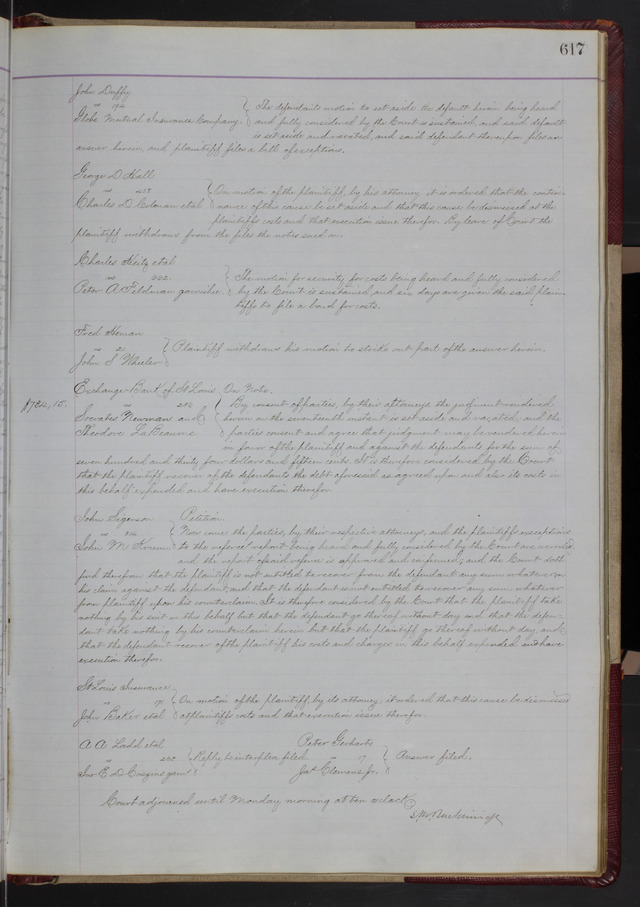 617
John Duffy
vs 194
Globe Mutual Insurance Company. The defendants motion to set aside the default herein being heard
and fully considered by the Court is sustained, and said default
is set aside and vacated, and said defendant thereupon files an
answer herein, and plaintiff files a bill of exceptions.
George D Hall
vs
Charles D Colman et al On motion of the plaintiff, by his attorney it is ordered that the contin-
uance of this cause be set aside and that this cause be dismissed at the
plaintiffs costs and that execution issue therefor. By leave of Court the
plaintiff withdraws from the files the notes sued on.
Charles et al
vs 222
Peter A Feldman garnishee The motion for security for costs being heard and fully considered
by the Court is sustained and six days are given the said plain-
tiffs to file a bond for costs.
Fred Heman
vs 21
John S Wheeler Plaintiff withdraws his motion to strike out part of the answer herein.
Exchange Bank of St Louis. On Note.
$734,15. vs
Socrates Newman and By consent of parties, by their attorneys the judgment rendered
herein on the seventeenth instant is set aside and vacated, and the
Theodore La Beaume parties consent and agree that judgment may be rendered herein
in favor of the plaintiff and against the defendants for the sum of
seven hundred and thirty four dollars and fifteen cents. It is therefore considered by the Court
that the plaintiff recover of the defendants the debt aforesaid as agreed upon and also its costs in
this behalf expended and have execution therefor.
John Sigerson Petition
vs
John M Now come the parties, by their respective attorneys, and the plaintiffs exceptions
to the referees report being heard and fully considered by the Court are overruled
and the report of said referee is approved and confirmed, and the Court doth
find therefrom that the plaintiff is not entitled to recover from the defendant any sum whatever on
his claim against the defendant, and that the defendant is not entitled to recover any sum whatever
from plaintiff upon his counterclaim. It is therefore considered by the Court that the plaintiff take
nothing by his suit in this behalf but that the defendant go thereof without day and that the defen-
dant take nothing by his counterclaim herein but that the plaintiff go thereof without day, and
that the defendant recover of the plaintiff his costs and charges in this behalf expended and have
execution therefor.
St Louis Insurance
vs 191
John Baker et al On motion of the plaintiff, by its attorney, it ordered that this cause be dismissed
at plaintiffs costs and that execution issue therefor.
A A Ladd et al Peter Gerharts
vs Reply to interplea filed. vs 17 Answer filed.
E D Cosgins garn Jas Clemens Jr.
Court adjourned until Monday morning at ten oclock